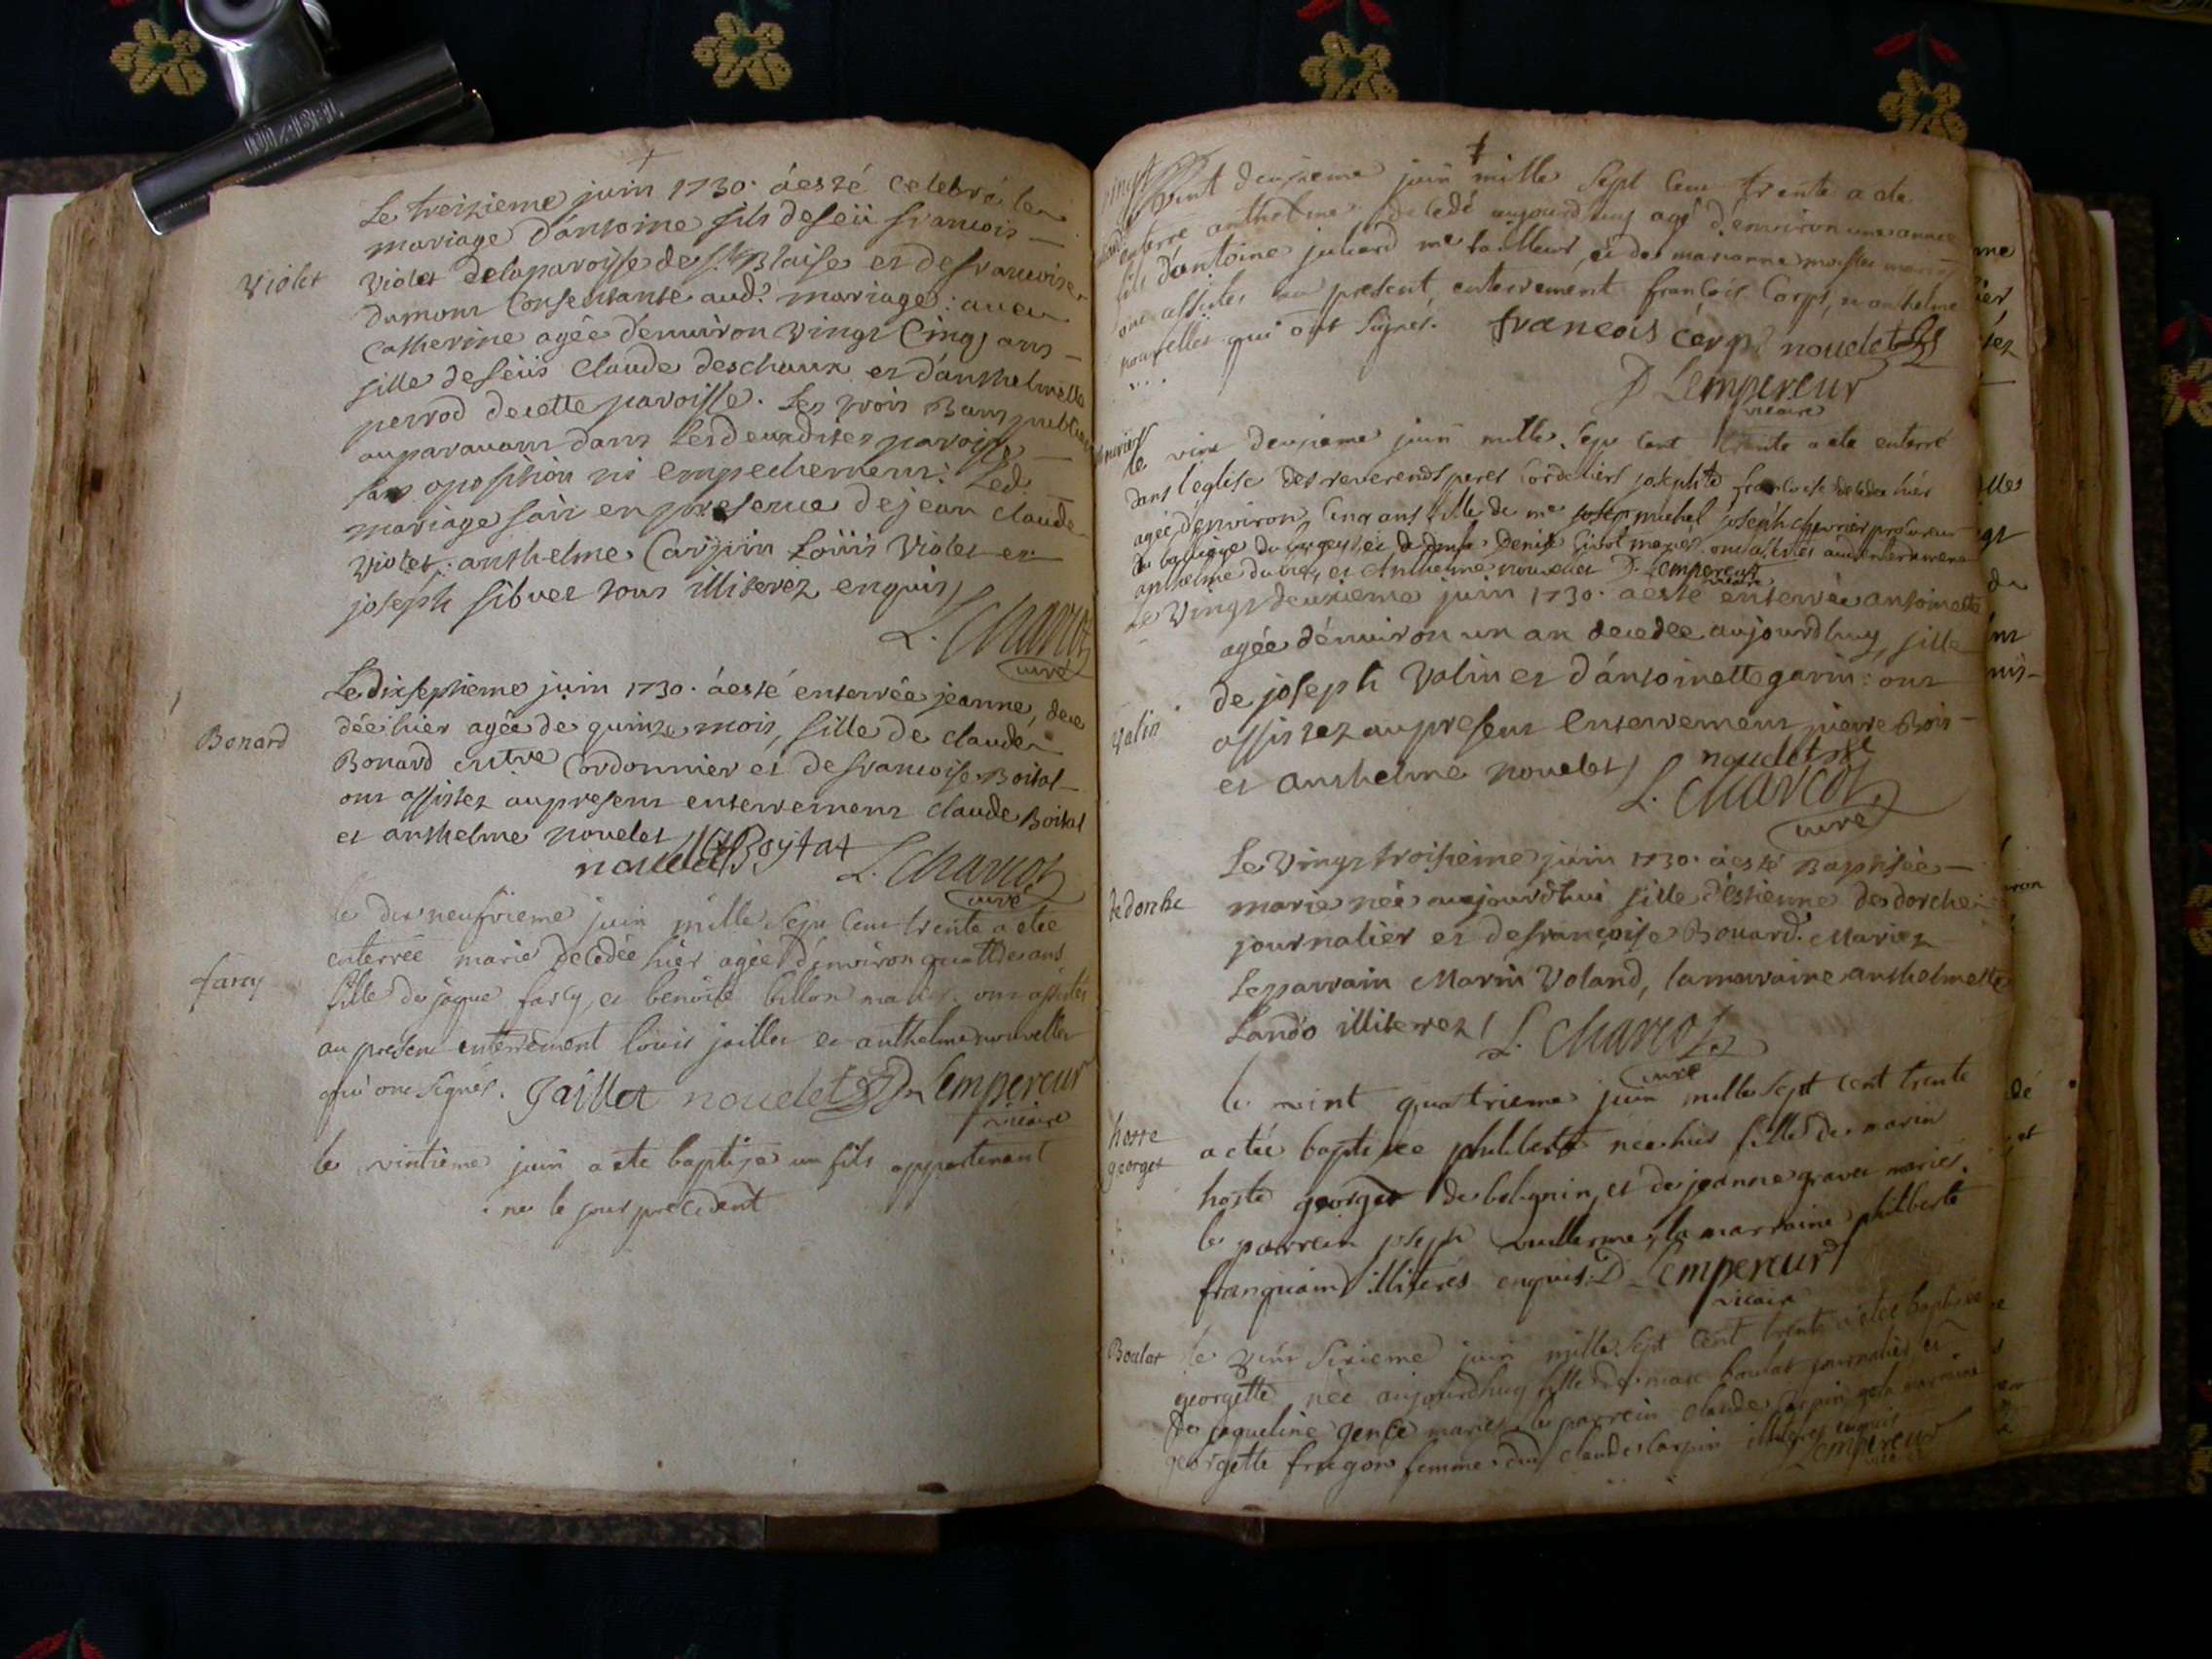 Le treizieme juin 1730. àesté celebré le
mariage d'antoine fils defeü francois
Violet
Violet delaparoisse de St Blaise et defrancoise
dumont Consentante aud.t mariage: avec
Catherine agée d'environ vingt Cinq ans
fille defeüs Claude deschaux et d'anthelmette
perrod decette paroisse. Les trois Bans publiez
auparavant dans lesdeuxdites paroisse
sans oposition ni empechement. Led.
mariage fait enpresence dejean claude
Violet, anthelme Carpin Loüis Violet et
joseph sibuet tous illiterez enquis
L. Charcot
curé
Ledixseptieme juin 1730. àesté enterrée jeanne, dece
Bonard
déehier agée de quinze mois, fille de claude
Bonard me Cordonnier et defrancoise Boitat
ont assistez aupresent enterrement claude Boitat
et anthelme nouelet
nouelet Boytat L. Charcot
curé
le dixneufvieme juin mille sept cent trente a etée
enterrée marie decedée hier agée d'environ quattre ans
farcy
fille de jaque farcy, et benoite billon mariés. ont assistés
au présent enterrement loüis jaillet et anthelme nouvellet
qui ont signés. Jaillet nouelet D Lempereur
vicaire
le vintième juin a ete baptisé un fils appartenant
né le jour precedent
Le vint deuxieme juin mille sept cent trente a ete
enterré anthelme decedé aujourdhuy agé d'environ une année
fils d'antoine juliard me tailleur, et de marianne mariés
ont assistes au present enterrement francois Corps, et anthelme
nouvellet qui ont signés. francois corps nouelet
D Lempereur
vicaire
le vint deuxieme juin mille sept cent trente a ete enterré
dans l'église des reverends peres Cordeliers josephte francoise decedée hier
agée d'environ Cinq ans fille de me michel joseph chevrier procureur
au balliage du bugey et de denise mariés. ont assistés aud enterrement
anthelme et anthelme nouvellet D. Lempereur
vicaire
Le Vingtdeuxieme juin 1730. aesté enterrée antoinette
agée d'environ un an decedée aujourdhuy, fille
de joseph Valin et d'antoinette gavin: ont
Valin
assistez aupresent enterrement pierre Bois
et anthelme nouelet nouelet
L. Charcot
curé
Le Vingttroisieme juin 1730. àesté Baptisée
dedorche
marie née aujourdhui fille d'estienne dedorche
journalier et defrançoise Bouard. Mariez
Leparrain Marin Voland, lamarraine anthelmette
Lando illiterez L. Charcot
curé
le vint quatrieme juin mille sept cent trente
hoste
georget
a etée baptisée philiberte née hier fille de marin
hoste georget de bolognin, et de jeanne gravet mariés.
le parrein joseph vuillerme, la marraine philiberte
franquain illiterés enquis. D Lempereur
vicaire
Boulat
le vint sixieme juin mille sept cent trente a etée baptisée
georgette née aujourdhuy fille de marc boulat journalier et
de jaqueline gence mariés. le parrein claude carpin et la marraine
georgette fregon femme dud claude Carpin illiterés enquis
Lempereur